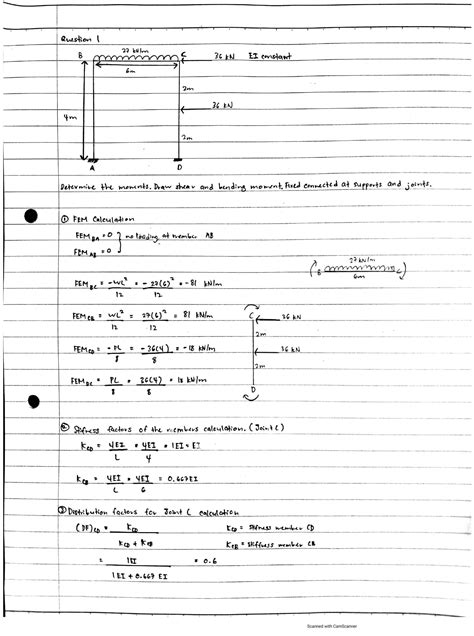 Question 1
27 kN/m
B C 36 kN EI constant
6m
2m
36 kN
4m
2m
A D
Determine the moments. Draw shear and bending moment. Fixed connected at supports and joints.
① FEM Calculation
FEM BA = 0 } no loading at member AB
FEM AB = 0
27 kN/m
B C
6m
FEM BC = -WL² / 12 = -27(6)² / 12 = -81 kN/m
FEM CB = WL² / 12 = 27(6)² / 12 = 81 kN/m
C 36 kN
2m
FEM CD = -PL / 8 = -36(4) / 8 = -18 kN/m
36 kN
2m
FEM DC = PL / 8 = 36(4) / 8 = 18 kN/m
D
② Stifness factors of the members calculation. (Joint C)
K CD = 4EI / L = 4EI / 4 = 1EI = EI
K CB = 4EI / L = 4EI / 6 = 0.667EI
③ Distribution factors for Joint C calculation
(DF)CD = K CD / K CD + K CB
K CD = Stifness member CD
K CB = Stiffness member CB
= 1EI / 1EI + 0.667 EI = 0.6
Scanned with CamScanner